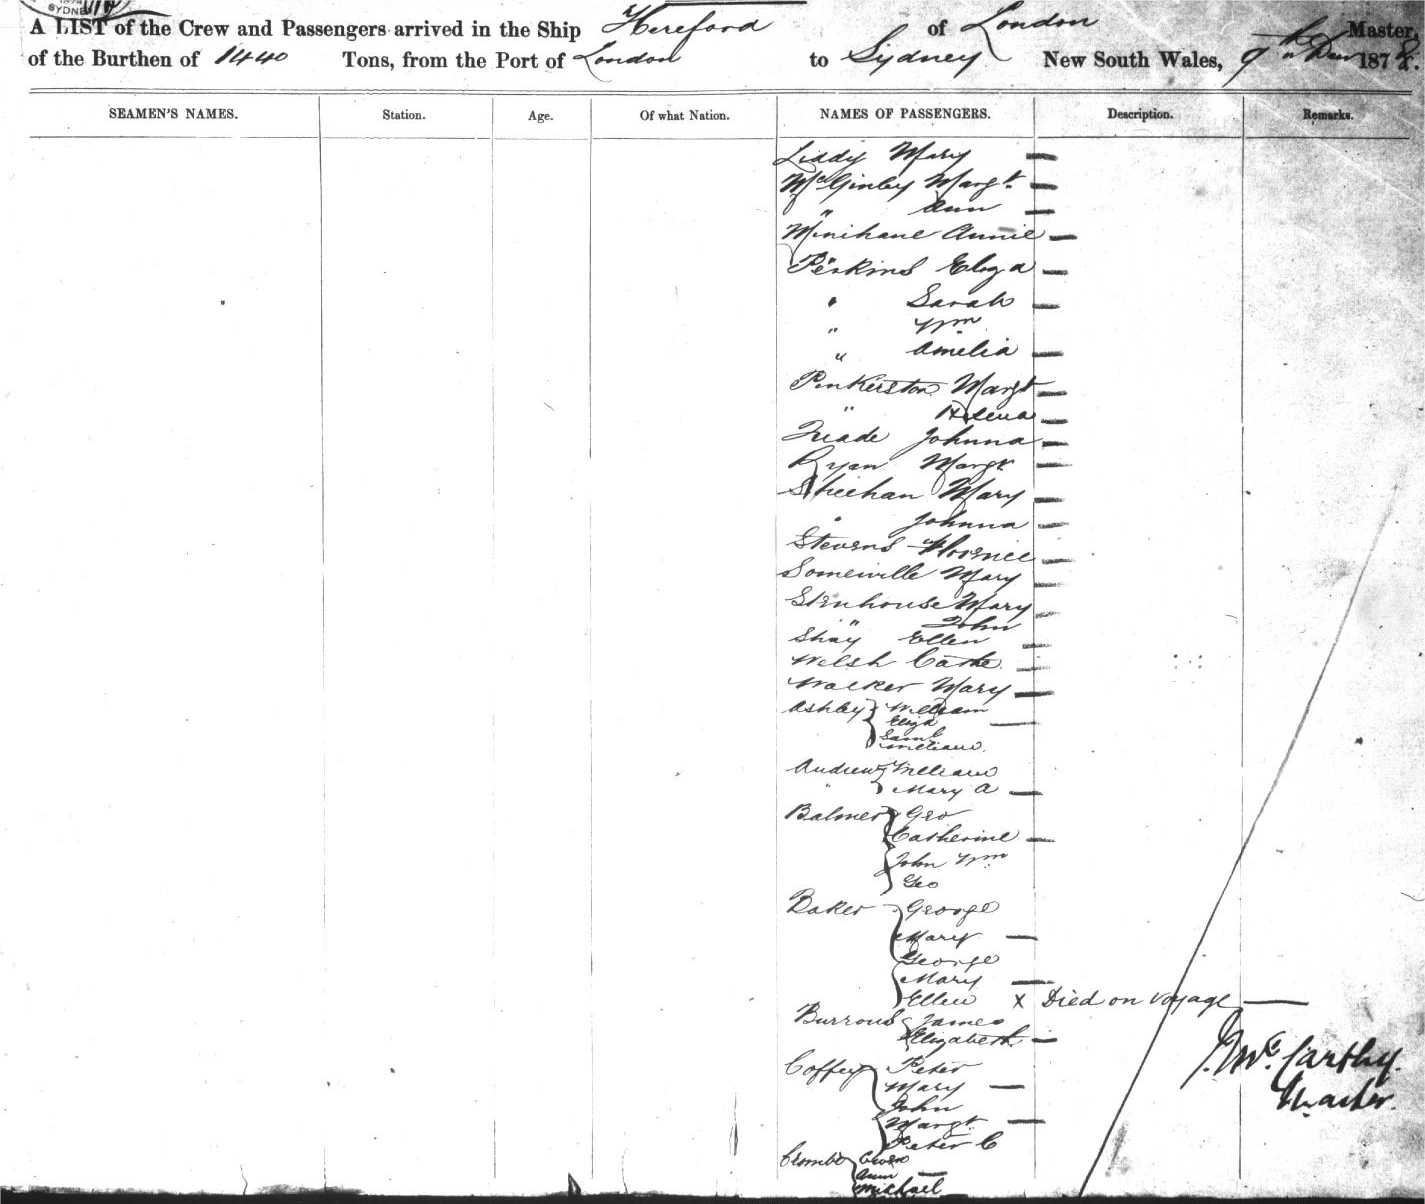 SYDNEY
A LIST of the Crew and Passengers arrived in the Ship Hereford of London Master,
of the Burthen of 1440 Tons, from the Port of London to Sydney New South Wales, 9th 187
SEAMEN'S NAMES. Station. Age. Of what Nation. NAMES OF PASSENGERS. Description. Remarks.
Liddy Mary —
McGinley Margt. —
" Ann —
Minihane Annie —
Perkins Eliza —
" Sarah —
" Wm
" Amelia —
Pinkerston Margt —
" Helena —
Johnna —
Ryan Margt —
Sheehan Mary —
" Johnna —
Stevens Florence —
Somerville Mary —
Stenhouse Mary —
" John
Shay Ellen —
Welsh Cathe. —
Walker Mary —
Ashby William
Eliza —
Saml
William
Andrew William
" Mary A —
Balmer Geo
Catherine —
John Wm
Geo
Baker George
Mary —
George
Mary —
Ellen x Died on voyage —
Burrows James
Elizabeth —
Coffey Peter
Mary —
John
Margt. —
Peter C
J. McCarthy.
Master.
Owen
Ann —
Michael